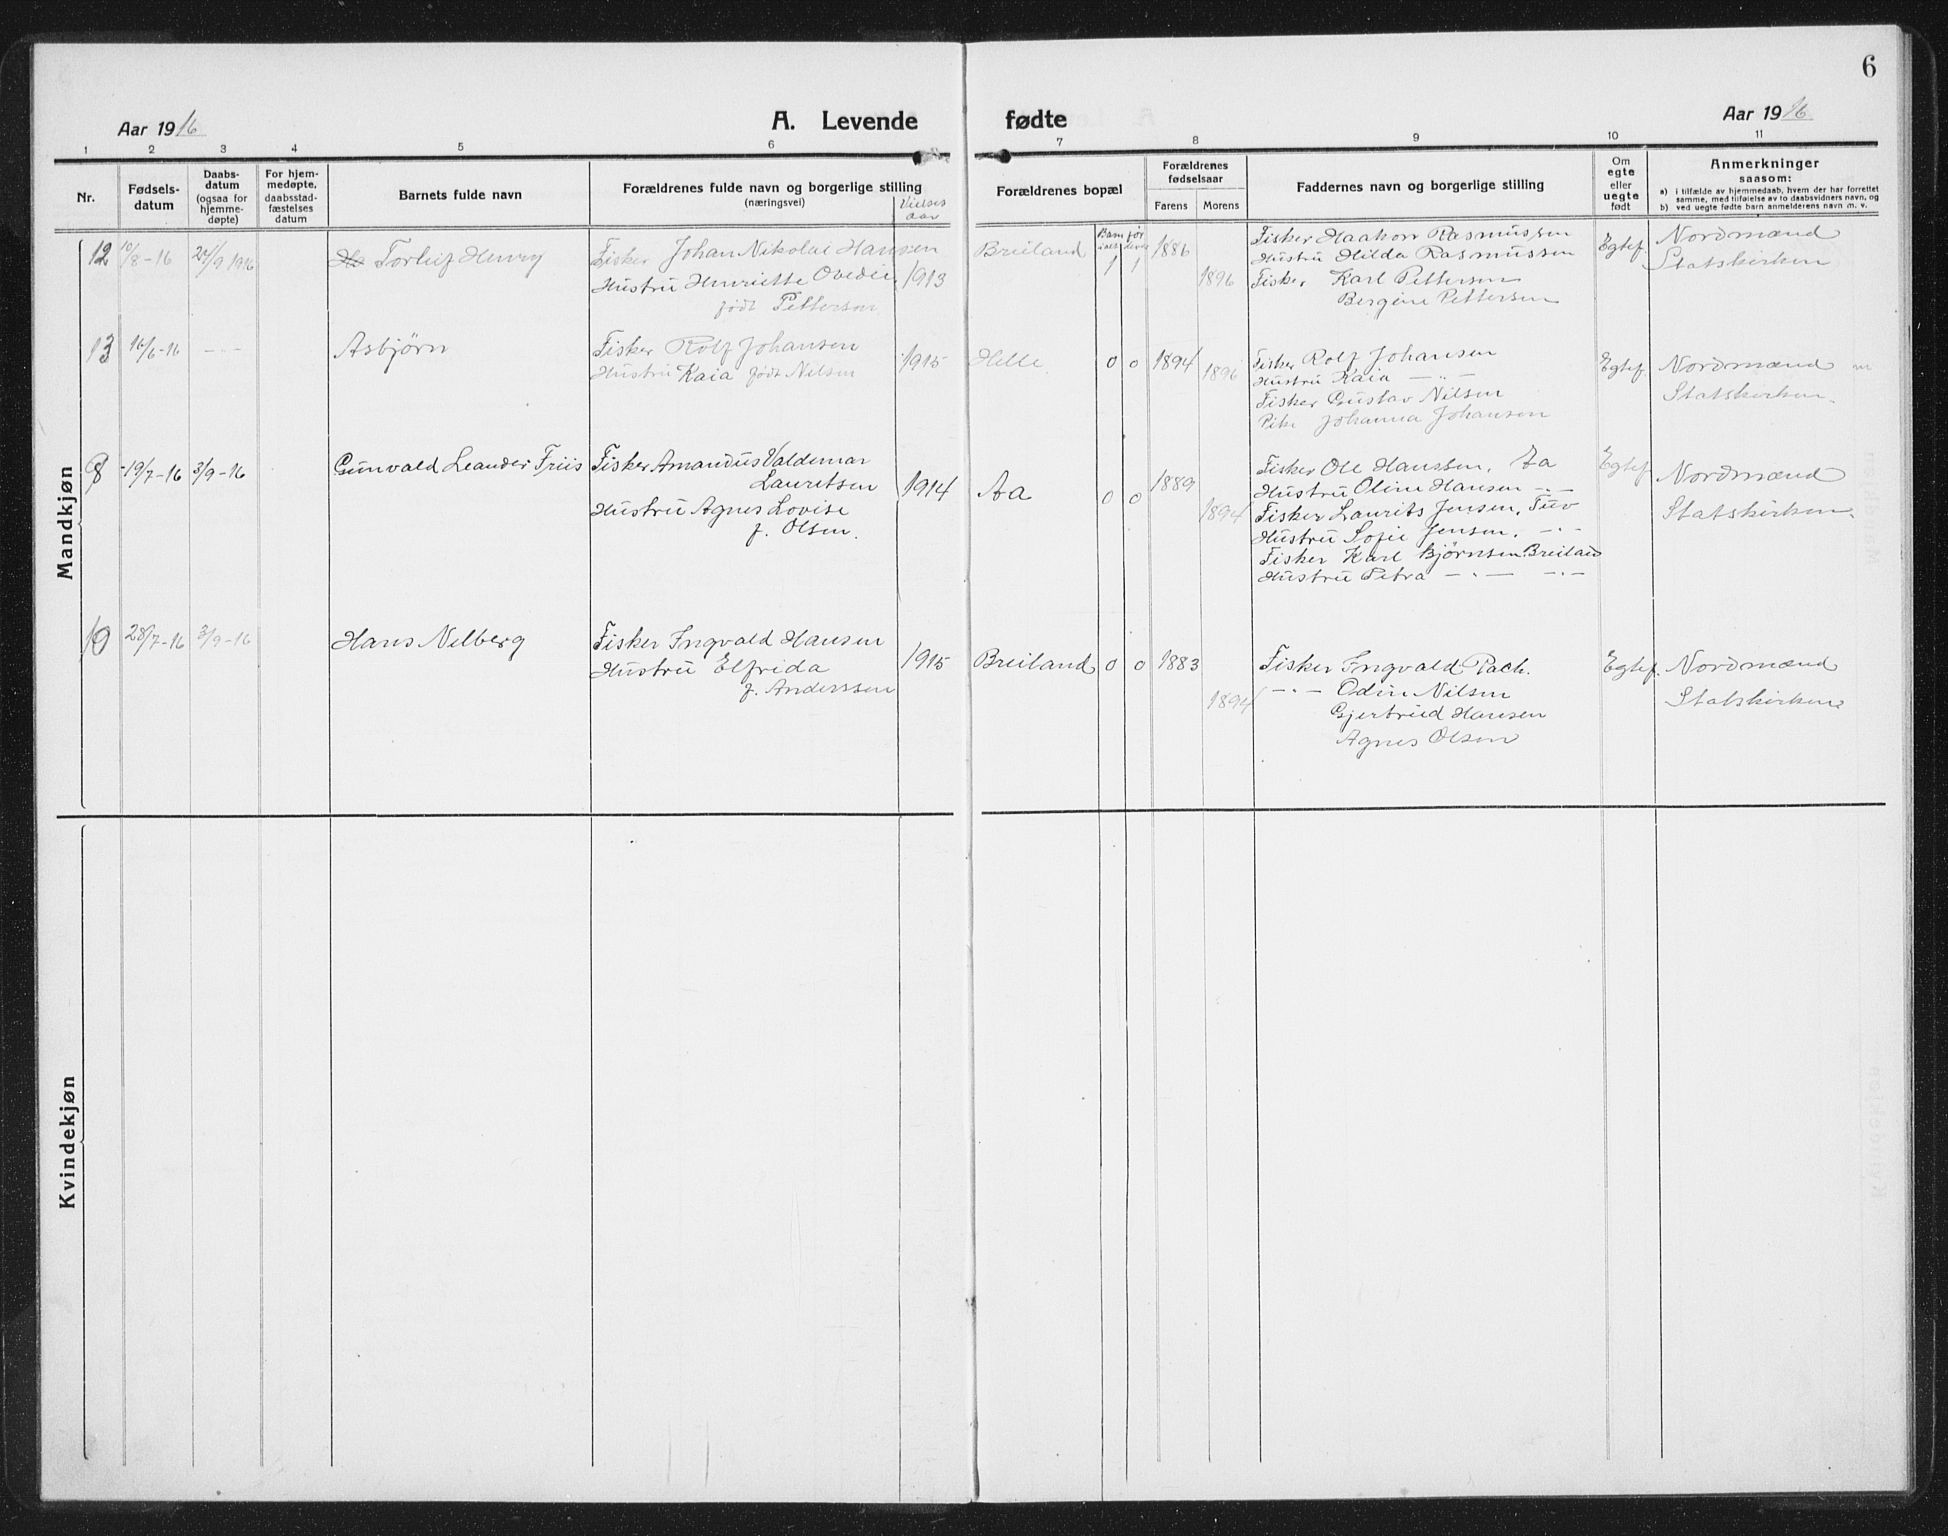 6
Aar 1916
A. Levende fødte
Aar 1916
1 2 3 4 5 6 7 8 9 10 11
Nr.
Fødsels-
datum
Daabs-
datum
(ogsaa for
hjemme-
døpte)
For hjem-
medøpte,
daabsstad-
fæstelses
datum
Barnets fulde navn
Forældrenes fulde navn og borgerlige stilling
(næringsvei)
Vielses
aar
Forældrenes bopæl
Forældrenes
fødselsaar
Farens Morens
Faddernes navn og borgerlige stilling
Om
egte
eller
uegte
født
Anmerkninger
saasom:
a) i tilfælde av hjemmedaab, hvem der har forrettet
samme, med tilføielse av to daabsvidners navn, og
b) ved uegte fødte barn anmelderens navn m. v.
Mandkjøn
12 10/8-16 24/9 1916 Torleif Henry
Fisker Johan Nikolai Hansen
Hustru Henriette Ovedie
født Pettersen
1913
Breiland 1 1 1886 1896
Fisker Haakon Rasmussen
Hustru Hilda Rasmussen
Fisker Karl Pettersen
Bergine Pettersen
Egtef.
Nordmænd
Statskirken
13 16/6-16 — Asbjørn
Fisker Rolf Johansen
Hustru Kaia født Nilsen
1915
Helle 0 0 1894 1896
Fisker Rolf Johansen
Hustru Kaia — " —
Fisker Gustav Nilsen
Pike Johanna Johansen
Egtef.
Nordmænd
Statskirken.
8 19/7-16 3/9-16 Gunvald Leander Friis
Fisker Amandus Valdemar
Lauritsen
Hustru Agnes Lovise
f. Olsen.
1914
Aa 0 0 1889 1894
Fisker Ole Hanssen, Aa
Hustru Oline Hansen — " —
Fisker Laurits Jensen, Tuv
Hustru Sofie Jensen. — " —
Fisker Karl Bjørnsen Breiland
Hustru Petra — " — — " —
Egtef.
Nordmænd
Statskirken.
10 28/7-16 3/9-16 Hans Nelberg
Fisker Ingvald Hansen
Hustru Elfrida
f. Anderssen
1915
Breiland 0 0 1883 1894
Fisker Ingvald Rach.
— " — Odin Nilsen
Gjertrud Hansen
Agnes Olsen
Egtef.
Nordmænd
Statskirken
Kvindekjøn